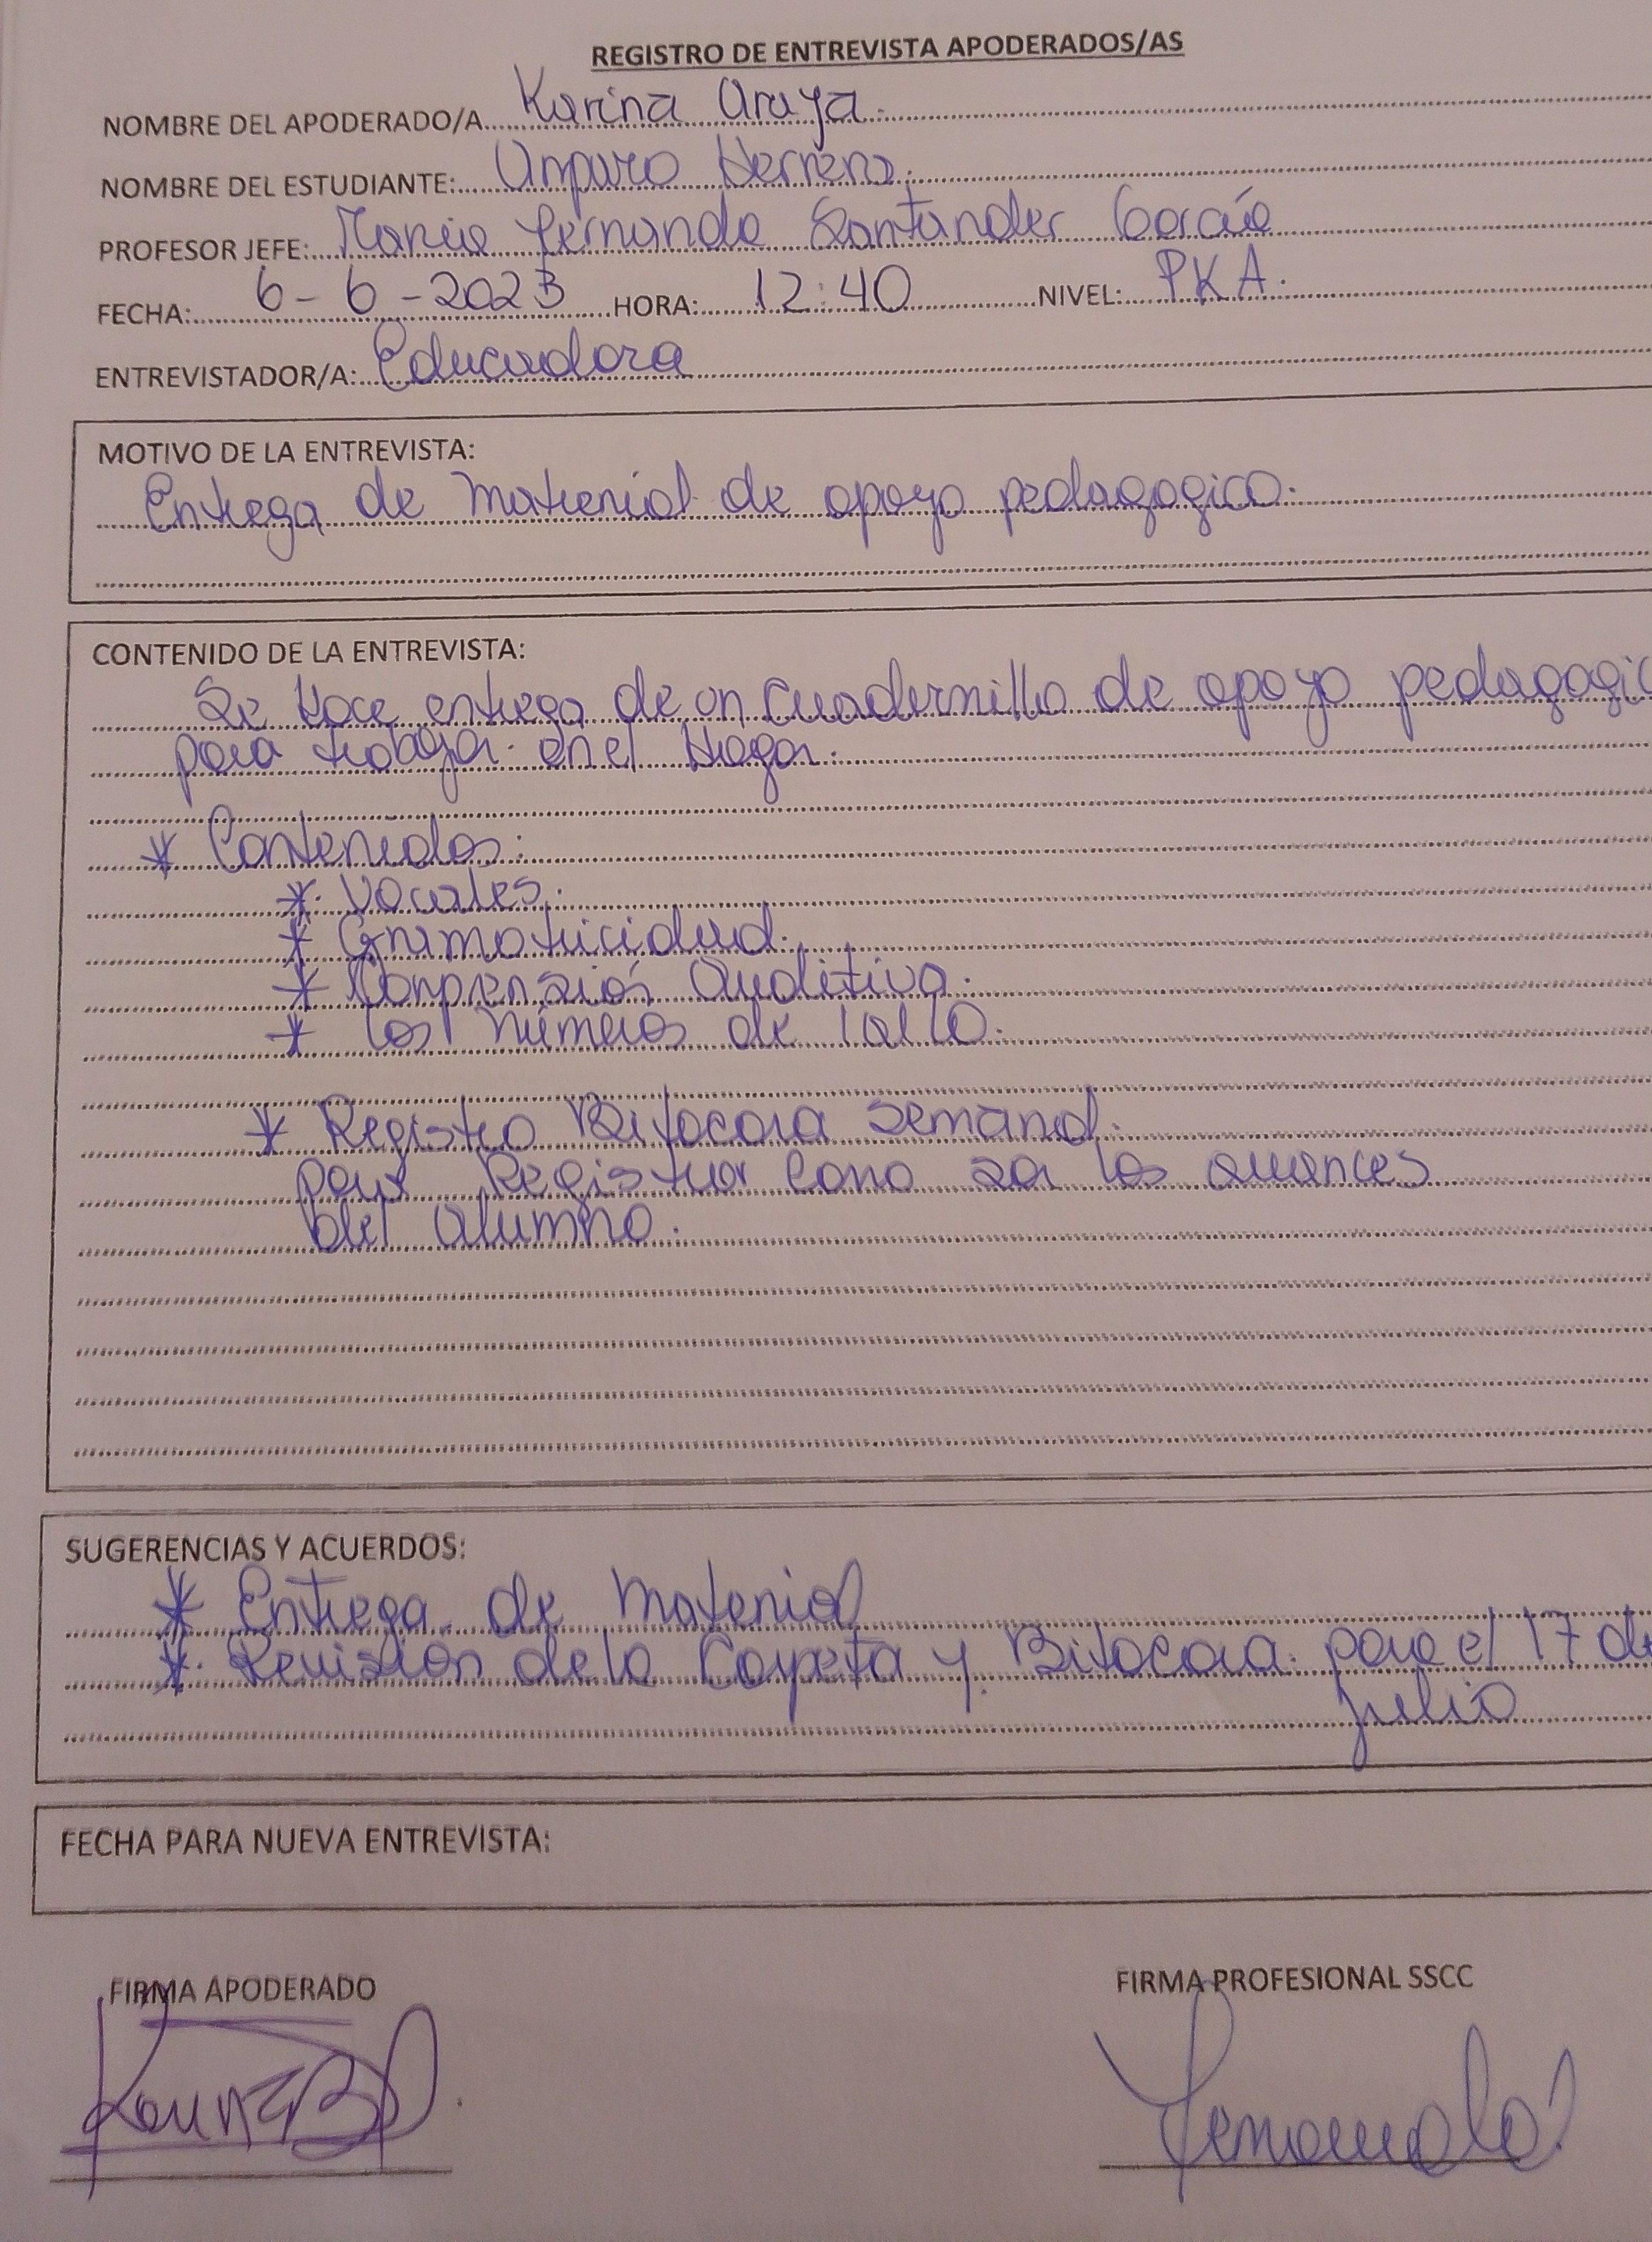 REGISTRO DE ENTREVISTA APODERADOS/AS
NOMBRE DEL APODERADO/A Karina Araya.
NOMBRE DEL ESTUDIANTE: Amparo Herrera.
PROFESOR JEFE: María Fernanda Santander García
FECHA: 6-6-2023 HORA: 12:40 NIVEL: PKA.
ENTREVISTADOR/A: Educadora
MOTIVO DE LA ENTREVISTA:
Entrega de material de apoyo pedagogico.
CONTENIDO DE LA ENTREVISTA:
Se Hace entrega de un cuadernillo de apoyo pedagogic
para trabajar en el Hogar.
* Contenidos:
* Vocales.
* Gramaticidad.
* Conprensión Auditiva.
* Los números de 1 al 10.
* Registro Bitacora semanal.
para Registrar como son los avances
del alumno.
SUGERENCIAS Y ACUERDOS:
* Entrega de material
* Revisión de la Carpeta y Bitacora para el 17 de
julio
FECHA PARA NUEVA ENTREVISTA:
FIRMA APODERADO FIRMA PROFESIONAL SSCC
Fernanda